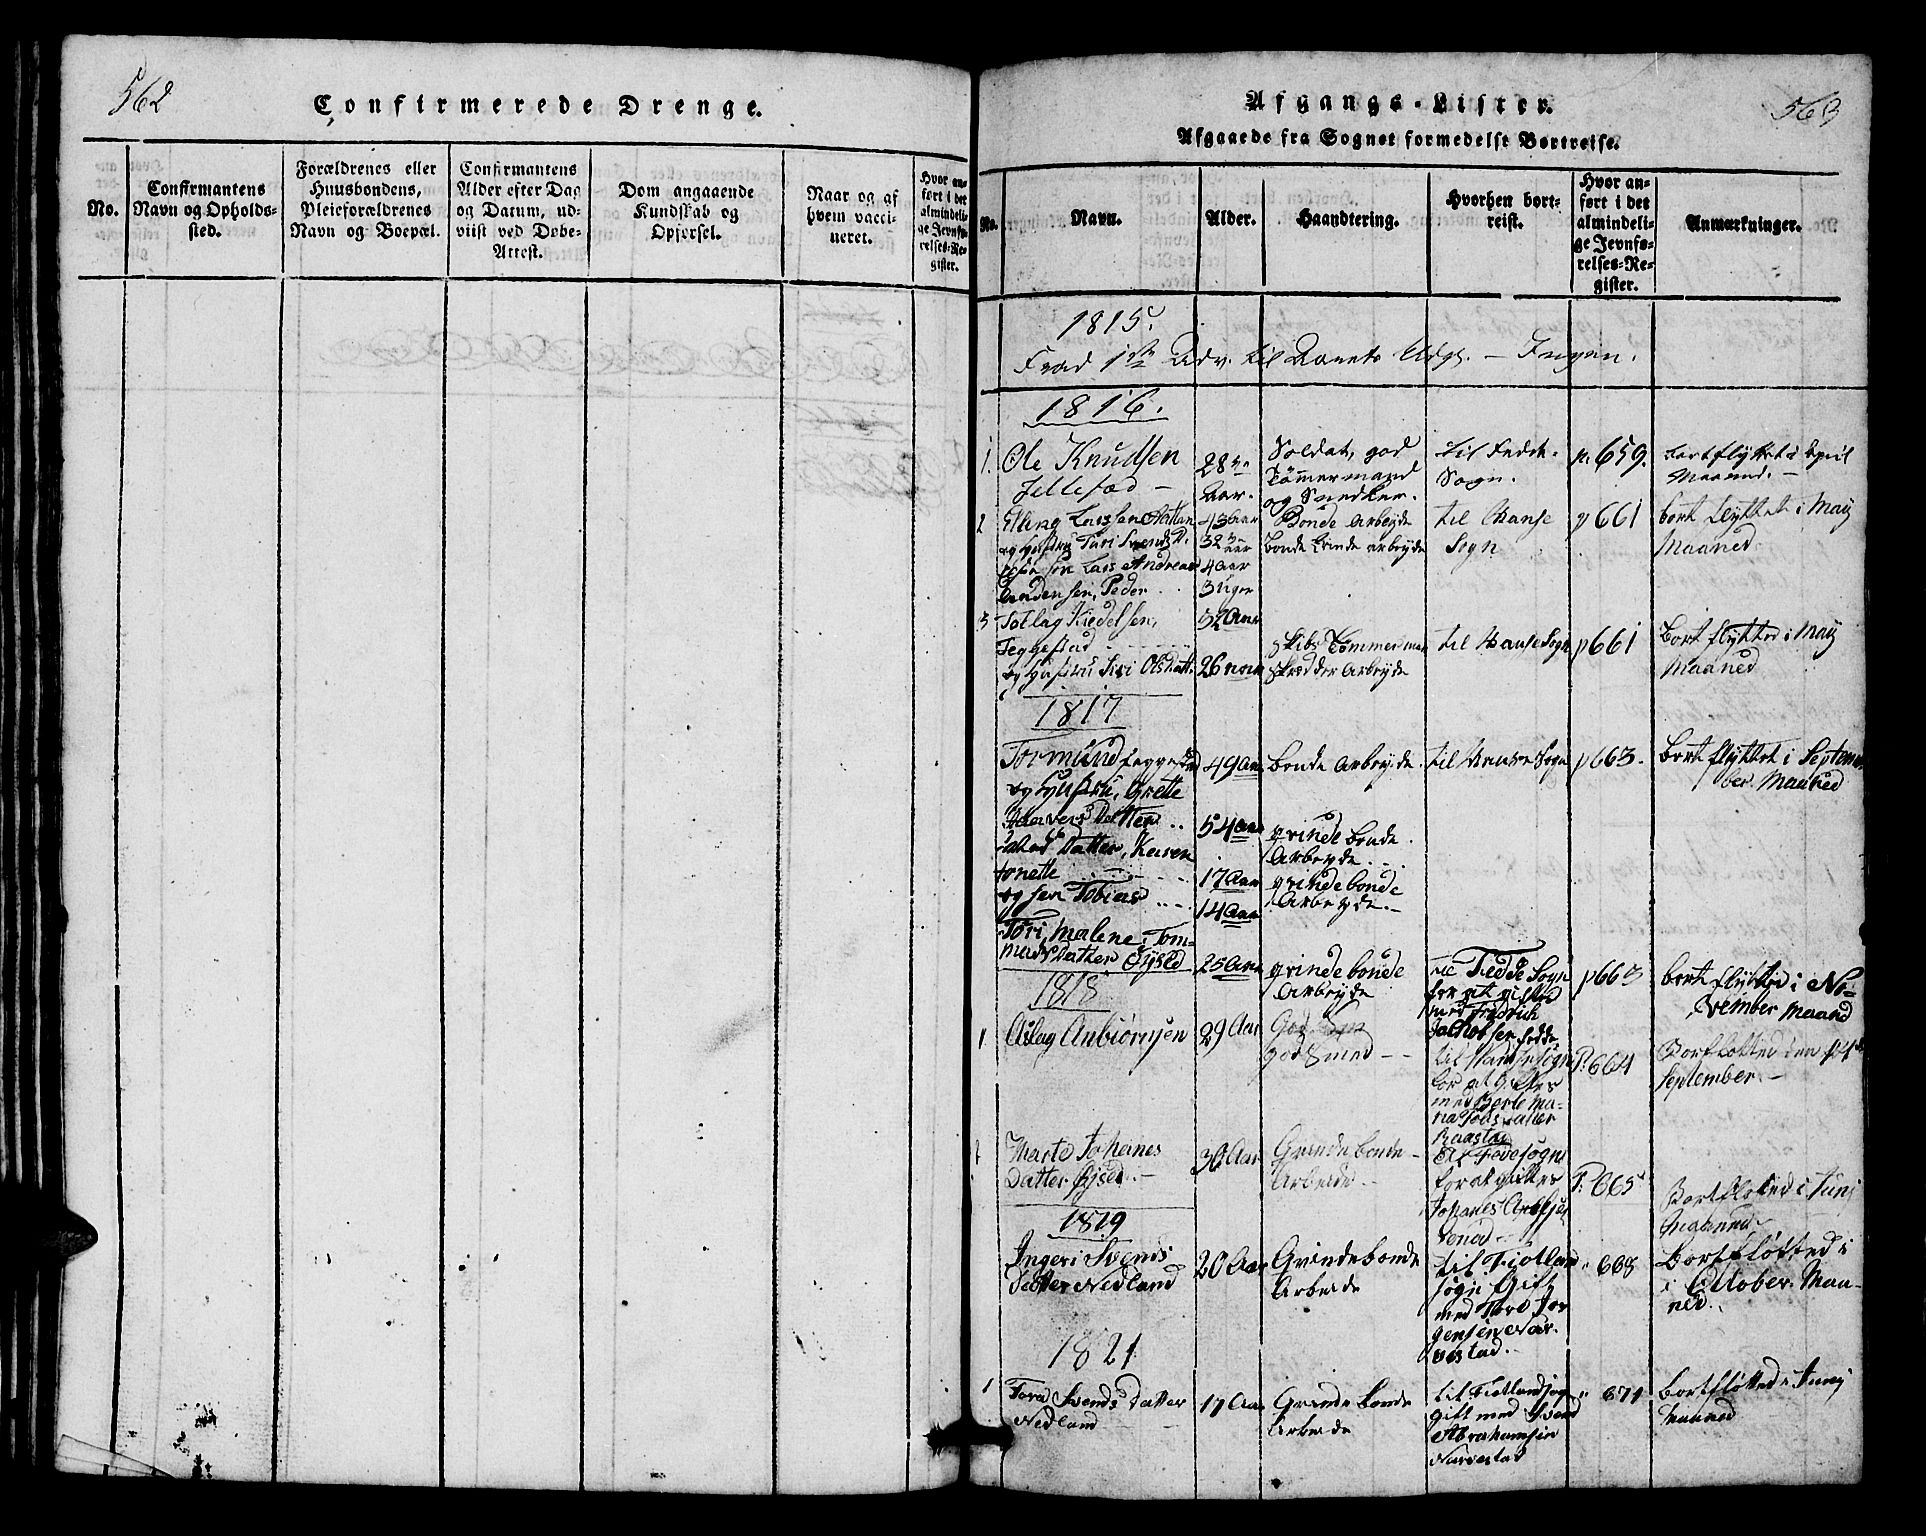 562
Confirmerede Drenge.
No.
Confirmantens
Navn og Opholds-
sted.
Forældrenes eller
Huusbondens,
Pleieforældrenes
Navn og Boepæl.
Confirmantens
Alder efter Dag
og Datum, ud-
viist ved Døbe-
Attest.
Dom angaaende
Kundskab og
Opførsel.
Naar og af
hvem vacci-
neret.
Hvor an-
ført i det
almindeli-
ge Jevnfø-
relses-Re-
gister.
563
Afgangs-Lister.
Afgaaede fra Sognet formedelst Bortreise.
No.
Navn.
Alder.
Haandtering.
Hvorhen bort-
reist.
Hvor an-
ført i det
almindeli-
ge Jevnfø-
relses-Re-
gister.
Anmærkninger.
1815.
Fra 1ste Adv. til Aarets Udg. — Ingen.
1816.
1. Ole Knudsen
28
Aar.
Soldat, god
Tömmermand
og Snedker.
til Fedde-
Sogn.
p. 659.
bortflyttet i April
Maaned.
2 Elling Larssen
og Hustru Turi Svends D.
Søn Lars Andreas
Anden Søn, Peder
43 Aar
32
4 Aar
3 Uger
Bonde Arbeyde
bonde qvinde arbeyde
til Hanse
Sogn
p 661
bort flyttet i May
Maaned
3 Tollag Kiedelsen,
Teggestad
og Hustru Siri Olsdatt:
32 Aar
26 aar
Skibs Tömmermand
Skrædder Arbeyde
til Hanse Sogn
p 661
Bort flyttet i May
Maaned
1817
Tormund Teggestad
og Hustru, Grette
Datter ..
Datter, Karen
tonette
og søn Tobias
49 Aar
54 aar
17 Aar
14 Aar
bonde Arbeyde.
qvinde bonde.
Arbeyde.
qvinde bonde
Arbeyde.
til Hanse Sogn
p 663.
Bort flyttet i Septem-
ber Maaned
Tori Malene, Tom-
Datter Öysed
25 Aar
qvinde bonde
Arbeyde
til Fedde Sogn
for at giftes
med Fredrich
Jacobsen Fedde
p 663
bort flyttet i No-
vember Maaned
1818
1 Aslag Anbiörnsen
29 Aar
God Smed
til Hanse sogn
for at Giftes
med Berte Ma-
ria Tobias datter
P. 664
Bortflötted den
September
2 Marte Johanes
Datter Øysed
30 Aar
Qvinde bonde
Arbeide
for at giftes
Johanes
P. 665
Bortflötted i Junj
Maaned
1819
Ingeri Svends
Datter Nedland
20 Aar
Qvinde bonde
Arbeide
til Fiotland
sogn Gift
med Tore Jor
gensen Nar
vestad.
668
Bortflötted i
October Maa-
ned.
1821
1 Tora Svends Datter
Nedland
17 Aar
Qvinde bonde
Arbeide
til Fiotland sogn
gift med Svend
Abrahamsen
Narvestad
671
Bortflötted i Junj
Maaned